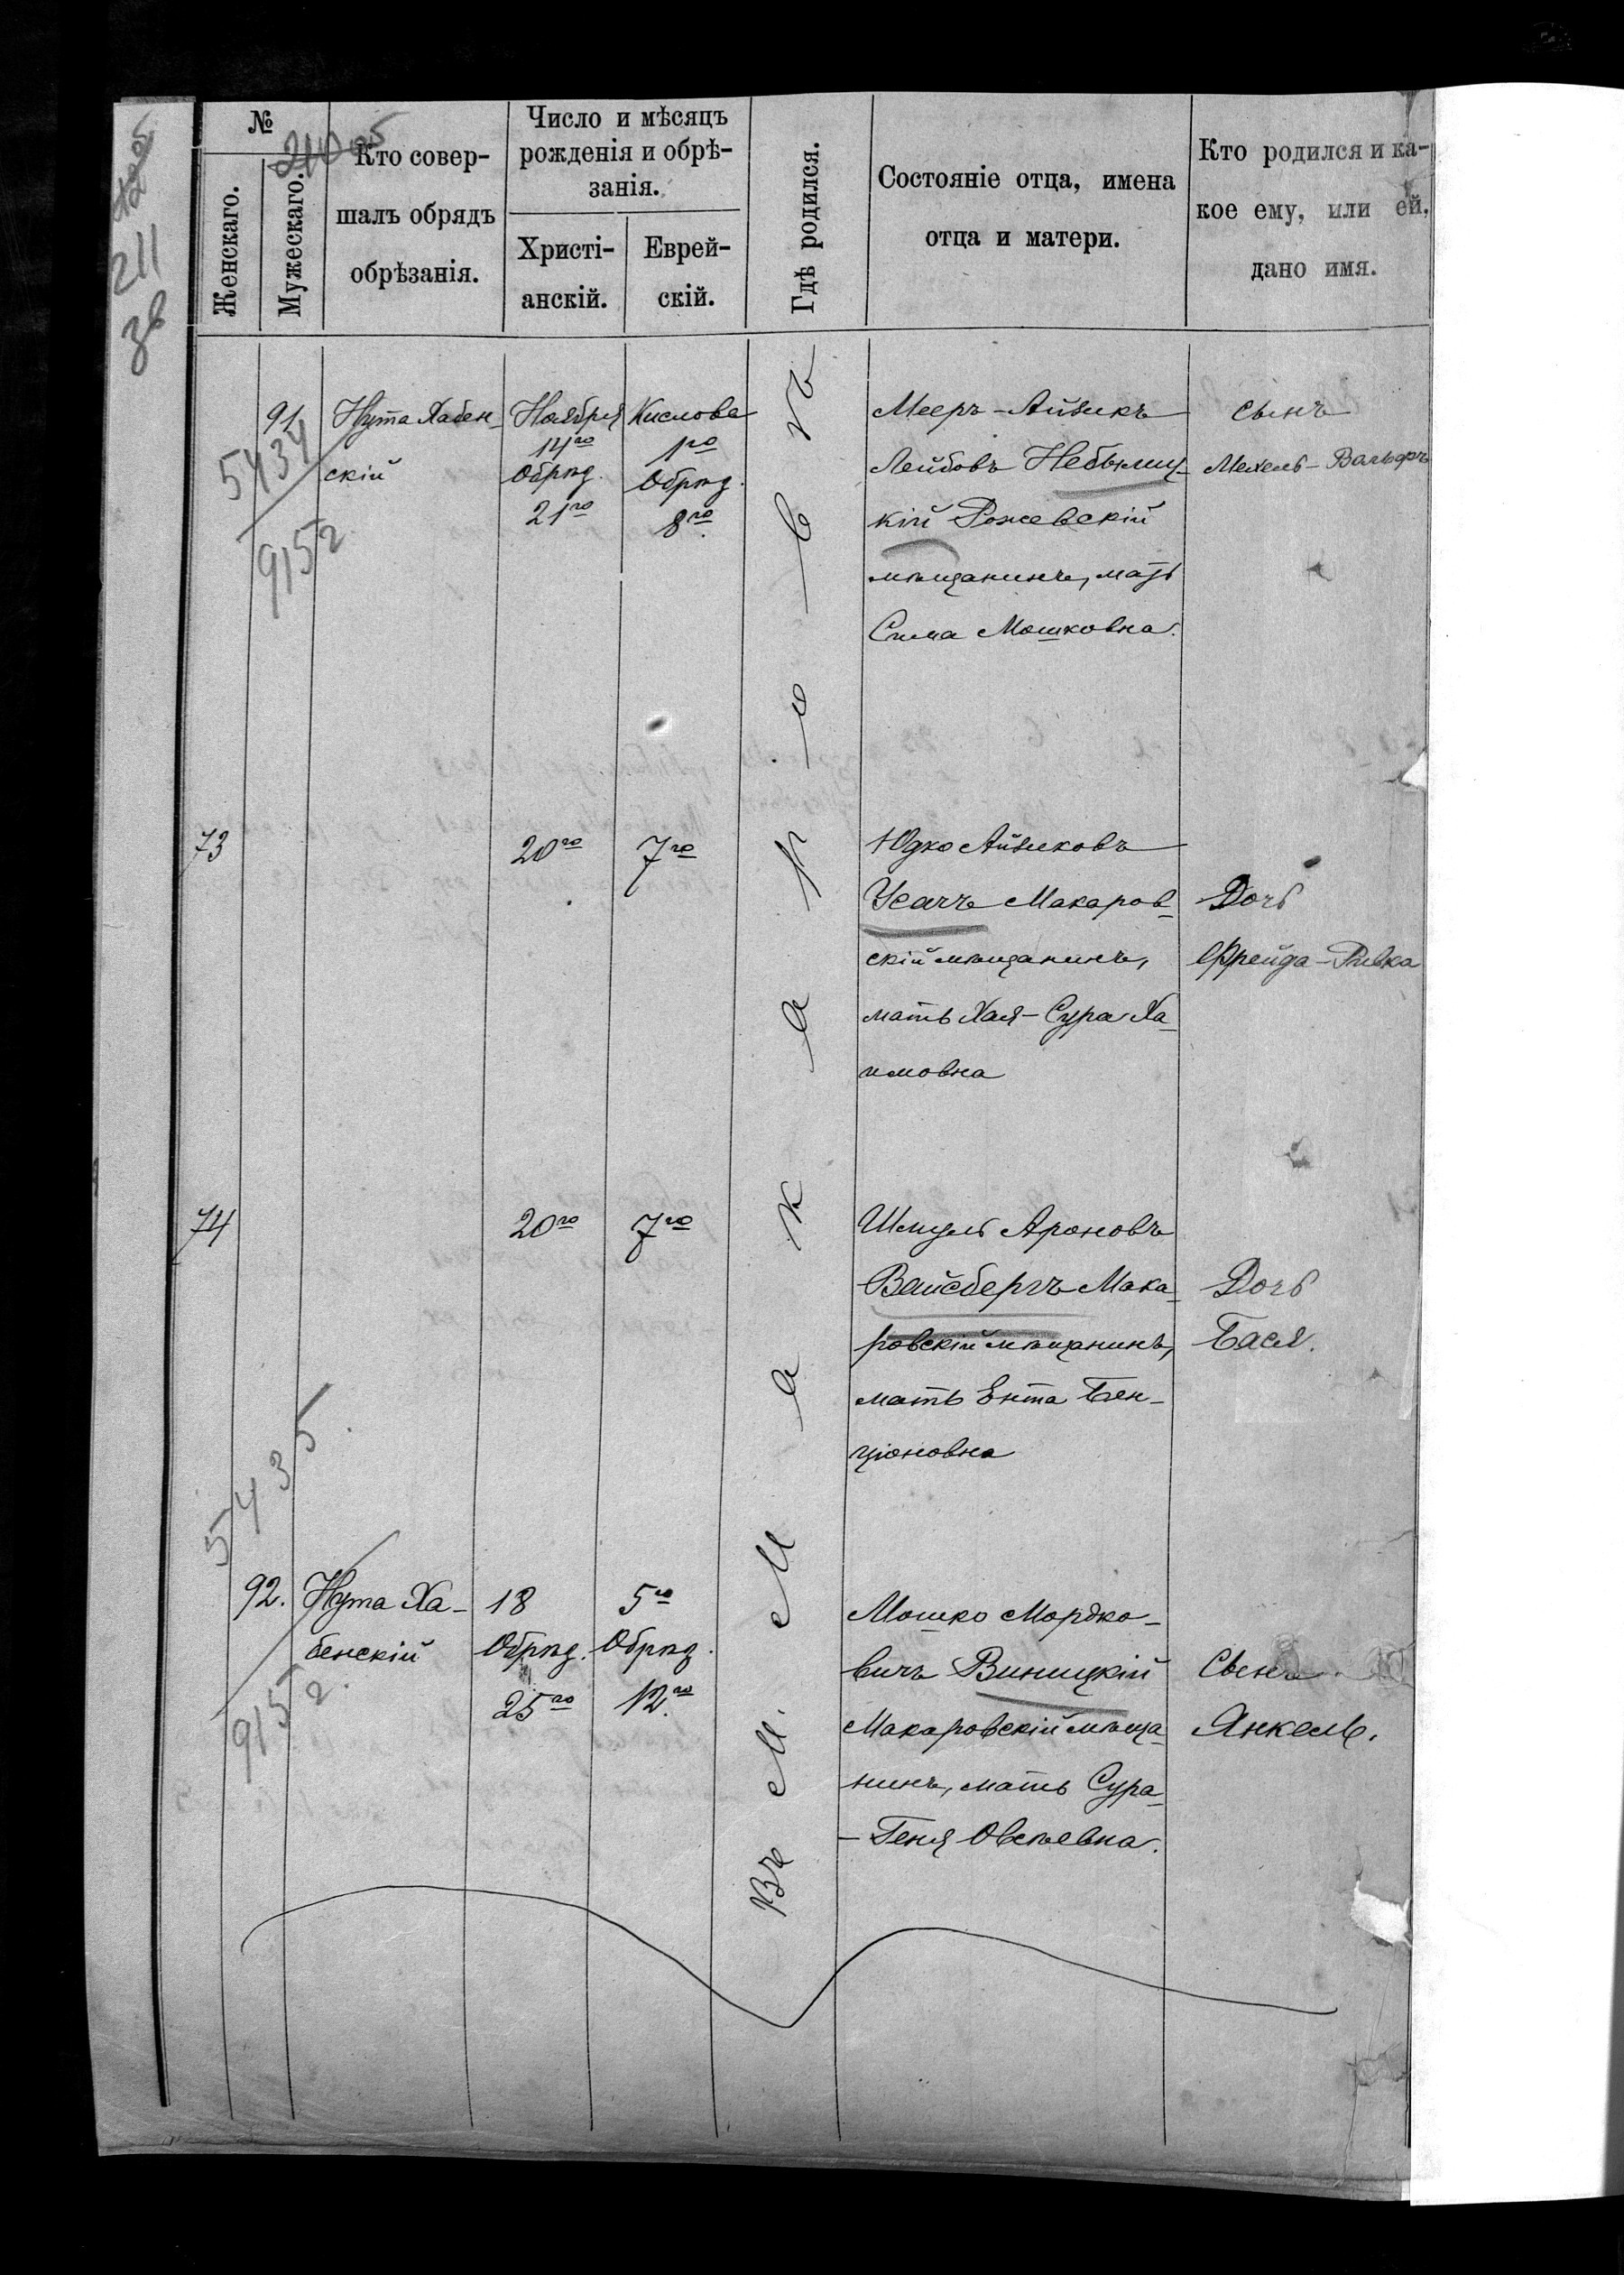 №
Женскаго.
Мужескаго.
Кто совер-
шалъ обрядъ
обрѣзанія.
Число и мѣсяцъ
рожденія и обрѣ-
занія.
Христі-
анскій.
Еврей-
скій.
Гдѣ родился.
Состояніе отца, имена
отца и матери.
Кто родился и ка-
кое ему, или ей,
дано имя.
211
38
Въ М. Макаровѣ
91
Нута Хабен-
скій
Ноября
14го
Обрѣз.
21го
Кислова
1го
Обрѣз.
8го.
Мееръ-Айзикъ
Лейбовъ Небылиц-
кій Рожевскій
мѣщанинъ, мать
Сима Мошковна.
сынъ
Мехель-Вальфъ
5434
9152
73
20го
7го
Юдко Айзиковъ
Усачъ Макаров-
скій мѣщанинъ,
мать Хая-Сура Ха-
имовна
Дочь
Фрейда-Ривка
74
20го
7го
Шмуль Ароновъ
Вайсбергъ Мака-
ровскій мѣщанинъ,
мать Ента Бен-
ціоновна
Дочь
Бася.
5435
9152.
92.
Нута Ха-
бенскій
18
Обрѣз.
25го
5го
Обрѣз.
12.го
Мошко Мордко-
вичъ Виницкій
Макаровскій мѣща-
нинъ, мать Сура-
-Геня Овсѣевна.
Сынъ
Янкель.